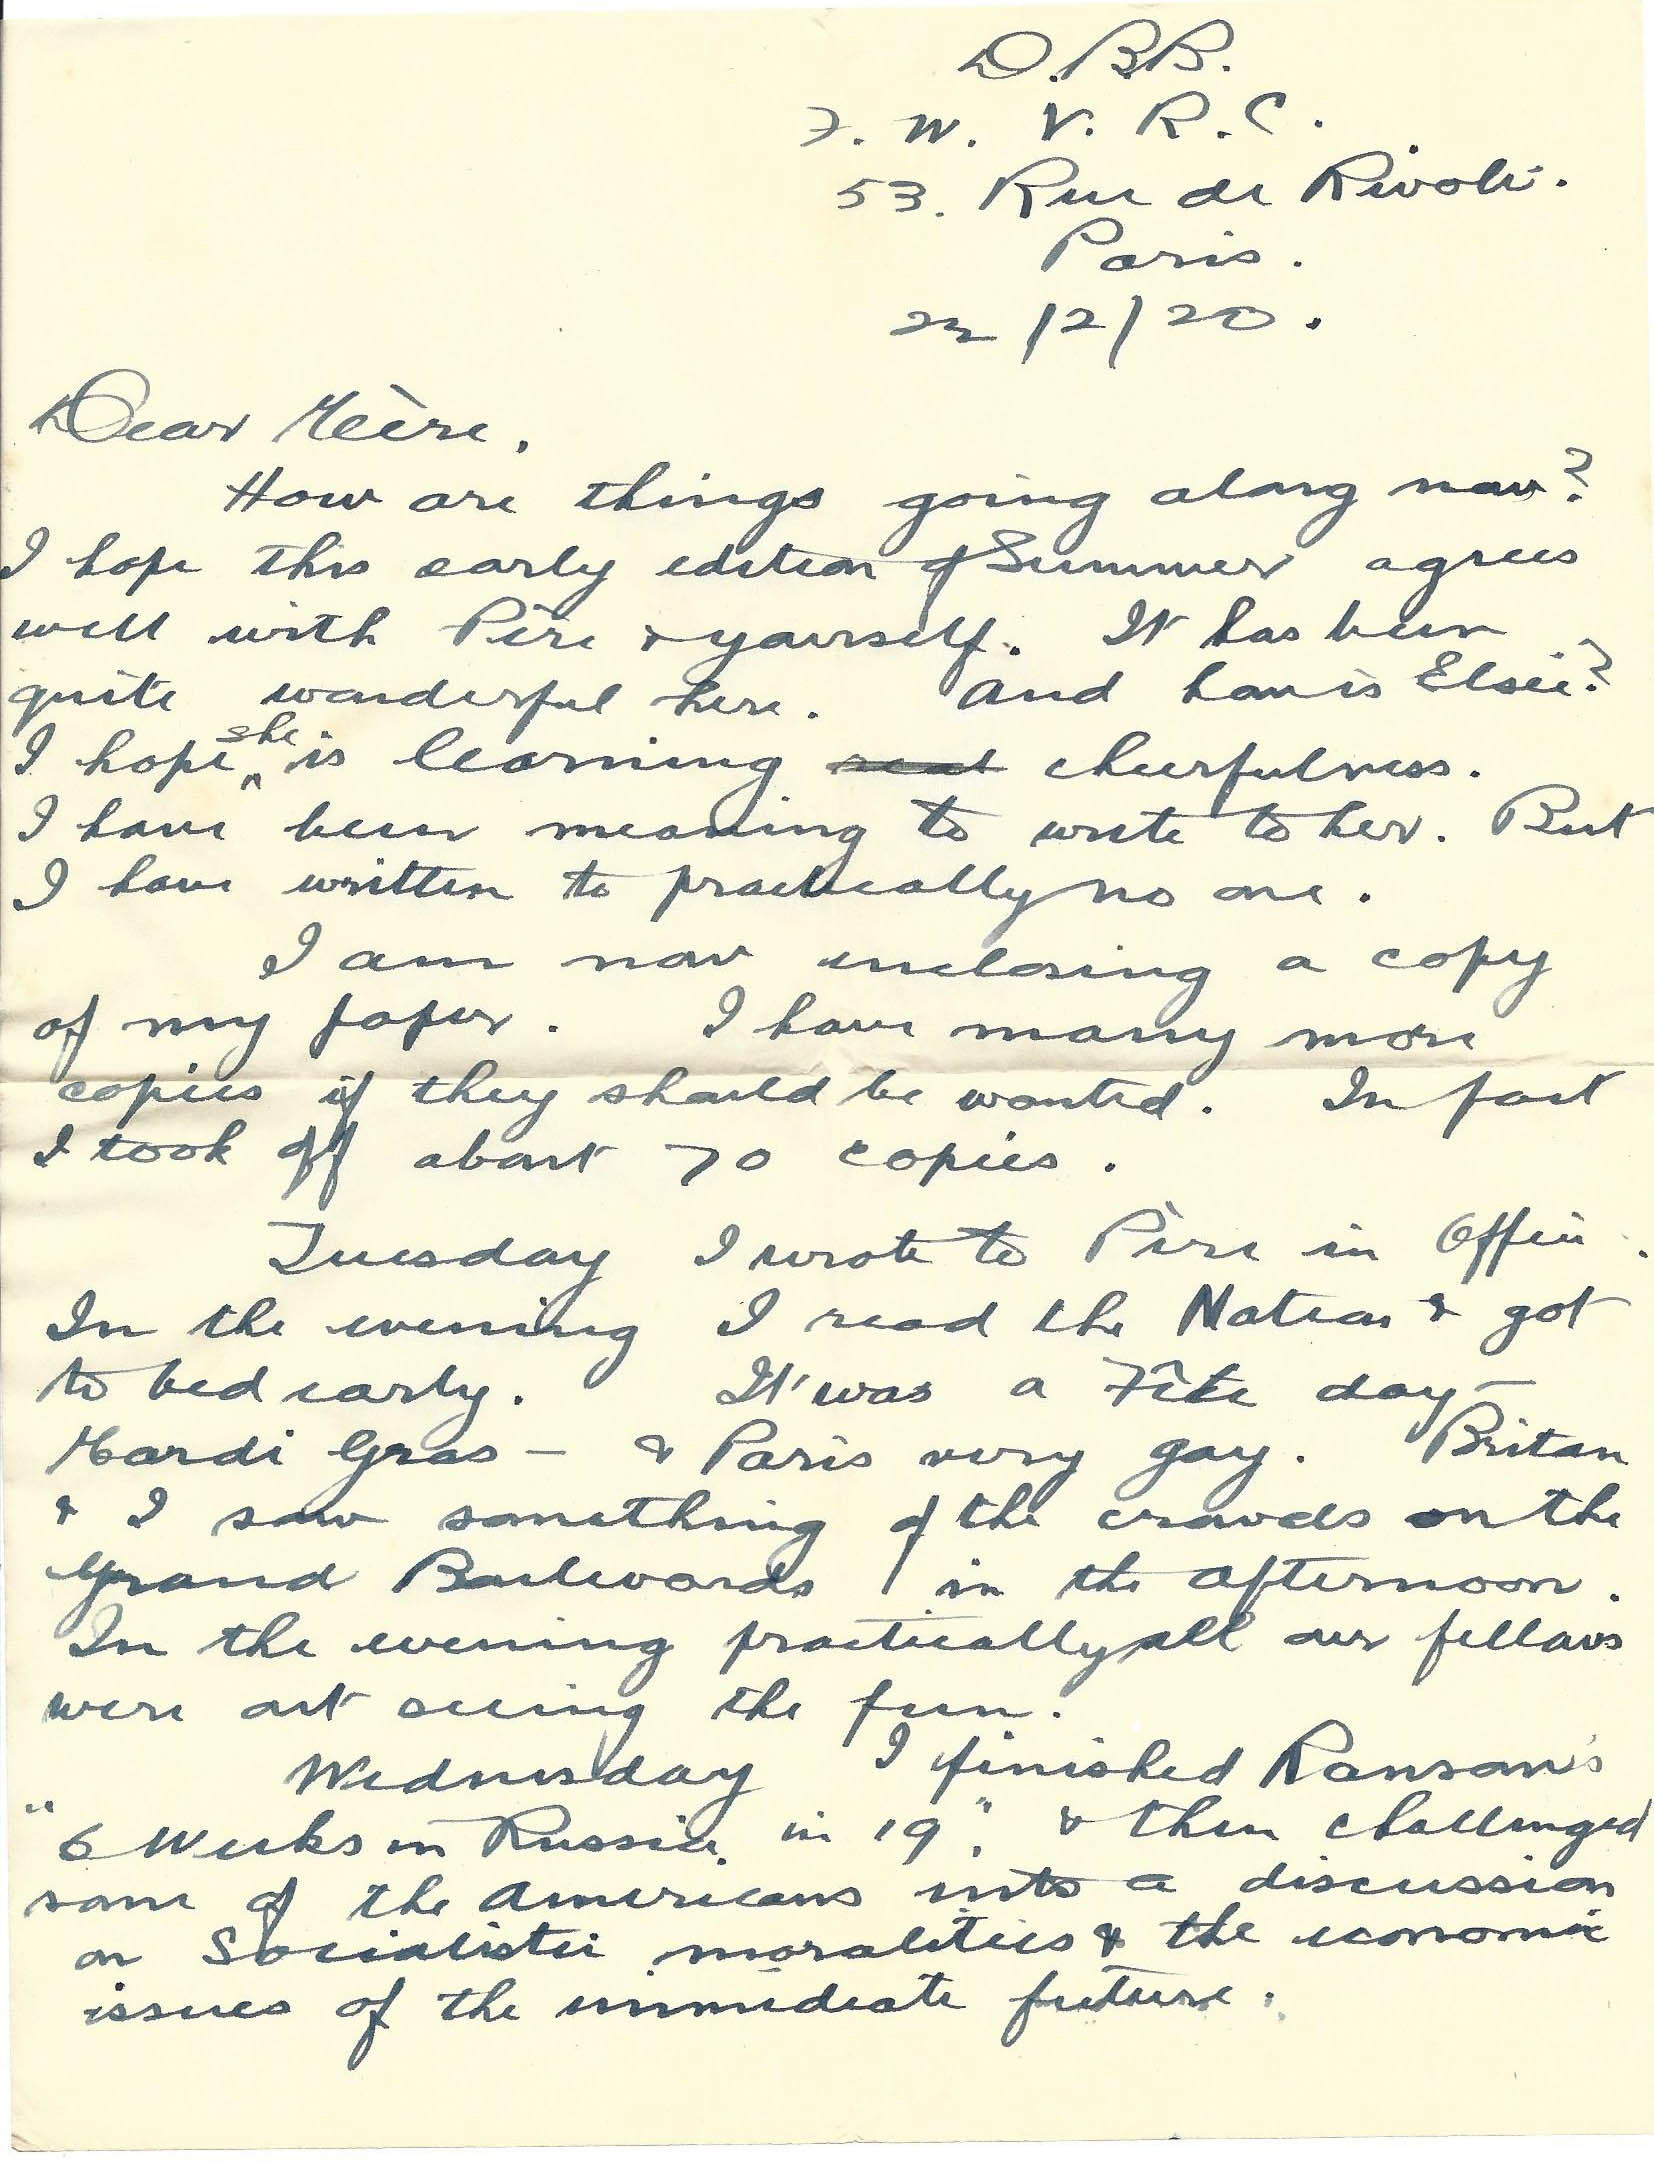 D.B.B.
F. W. V. R. C.
53. Rue de Rivoli.
Paris.
22/2/20.
Dear Mère,
How are things going along now?
I hope this early edition of Summer agrees
well with Père & yourself. It has been
quite wonderful here. And how is Elsie?
I hope she is learning real cheerfulness.
I have been meaning to write to her. But
I have written to practically no one.
I am now enclosing a copy
of my paper. I have many more
copies if they should be wanted. In fact
I took off about 70 copies.
Tuesday I wrote to Père in Office.
In the evening I read the Nation & got
to bed early. It was a Fête day—
Mardi Gras — & Paris very gay. Britan
& I saw something of the crowds on the
Grand Boulevards in the afternoon.
In the evening practically all our fellows
were out seeing the fun.
Wednesday I finished Ransom's
"6 Weeks in Russia in 19", & then challenged
some of the Americans into a discussion
on Socialistic moralities & the economic
issues of the immediate future.